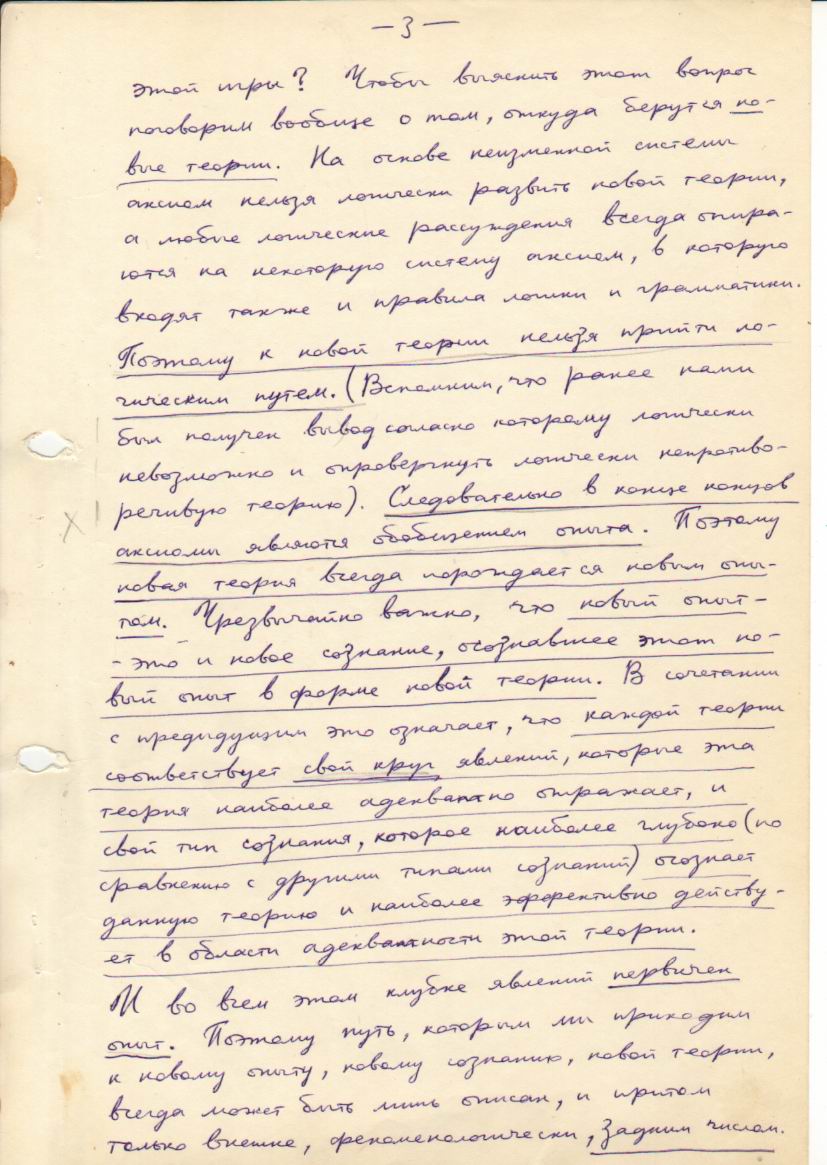 — 3 —
этой игры? Чтобы выяснить этот вопрос
поговорим вообще о том, откуда берутся но-
вые теории. На основе неизменной системы
аксиом нельзя логически развить новой теории,
а любые логические рассуждения всегда опира-
ются на некоторую систему аксиом, в которую
входят также и правила логики и грамматики.
Поэтому к новой теории нельзя прийти ло-
гическим путем. (Вспомним, что ранее нами
был получен вывод согласно которому логически
невозможно и опровергнуть логически непротиво-
речивую теорию). Следовательно в конце концов
аксиомы являются обобщением опыта. Поэтому
новая теория всегда порождается новым опы-
том. Чрезвычайно важно, что новый опыт -
- это и новое сознание, осознавшее этот но-
вый опыт в форме новой теории. В сочетании
с предыдущим это означает, что каждой теории
соответствует свой круг явлений, которые эта
теория наиболее адекватно отражает, и
свой тип сознания, которое наиболее глубоко (по
сравнению с другими типами сознаний) осознает
данную теорию и наиболее эффективно действу-
ет в области адекватности этой теории.
И во всем этом клубке явлений первичен
опыт. Поэтому путь, которым мы приходим
к новому опыту, новому сознанию, новой теории,
всегда может быть лишь описан, и притом
только внешне, феноменологически, задним числом.